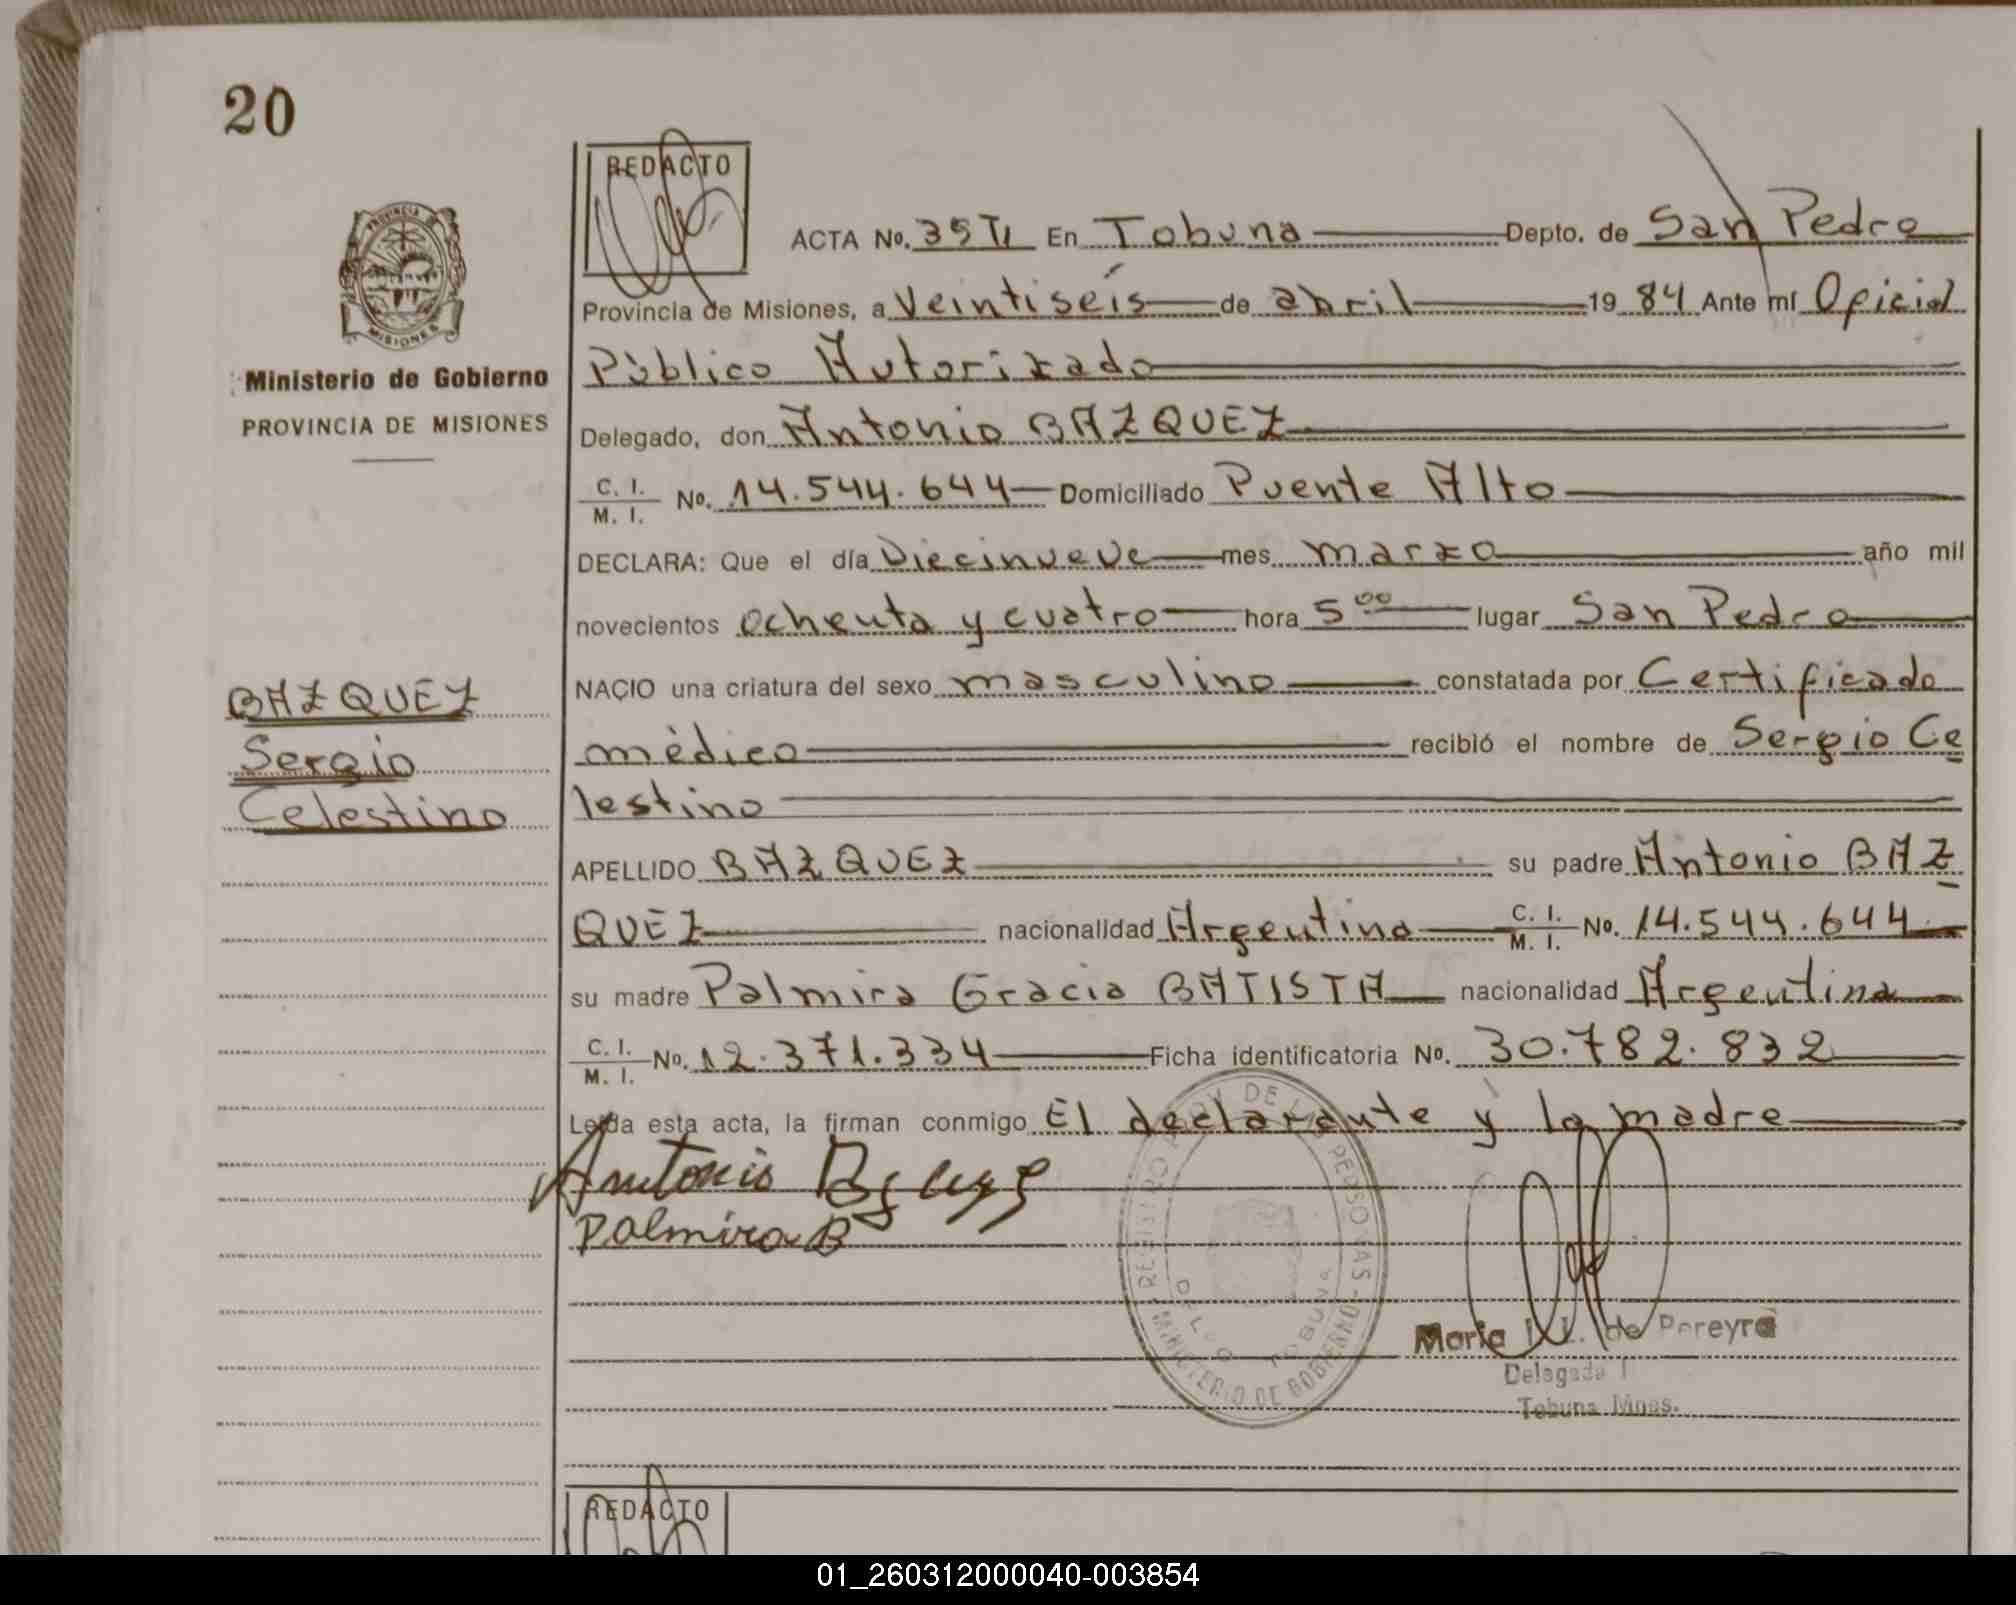 20
REDACTO
ACTA No. 39 TI En Tobuna Depto. de San Pedro
Provincia de Misiones, a Veintiséis de abril 19 84 Ante mí Oficial
Público Autorizado
Ministerio de Gobierno
PROVINCIA DE MISIONES
Delegado, don Antonio BAZQUEZ
C. I.
M. I. No. 14.544.644 Domiciliado Puente Alto
DECLARA: Que el día Diecinueve mes marzo año mil
novecientos ochenta y cuatro hora 5 00 lugar San Pedro
NACIO una criatura del sexo masculino constatada por Certificado
médico recibió el nombre de Sergio Ce
lestino
BAZQUEZ
Sergio
Celestino
APELLIDO BAZQUEZ su padre Antonio BAZ
QUEZ nacionalidad Argentina C. I. M. I. No. 14.544.644
su madre Palmira Gracia BATISTA nacionalidad Argentina
C. I.
M. I. No. 12.371.334 Ficha identificatoria No. 30.782.832
Leída esta acta, la firman conmigo El declarante y la madre
Antonio
Palmira B
REGISTRO DE LAS PERSONAS
MINISTERIO DE GOBIERNO
TOBUNA
Maria L. de Pereyra
Delegada I
Tobuna Mnes.
REDACTO
01_260312000040-003854